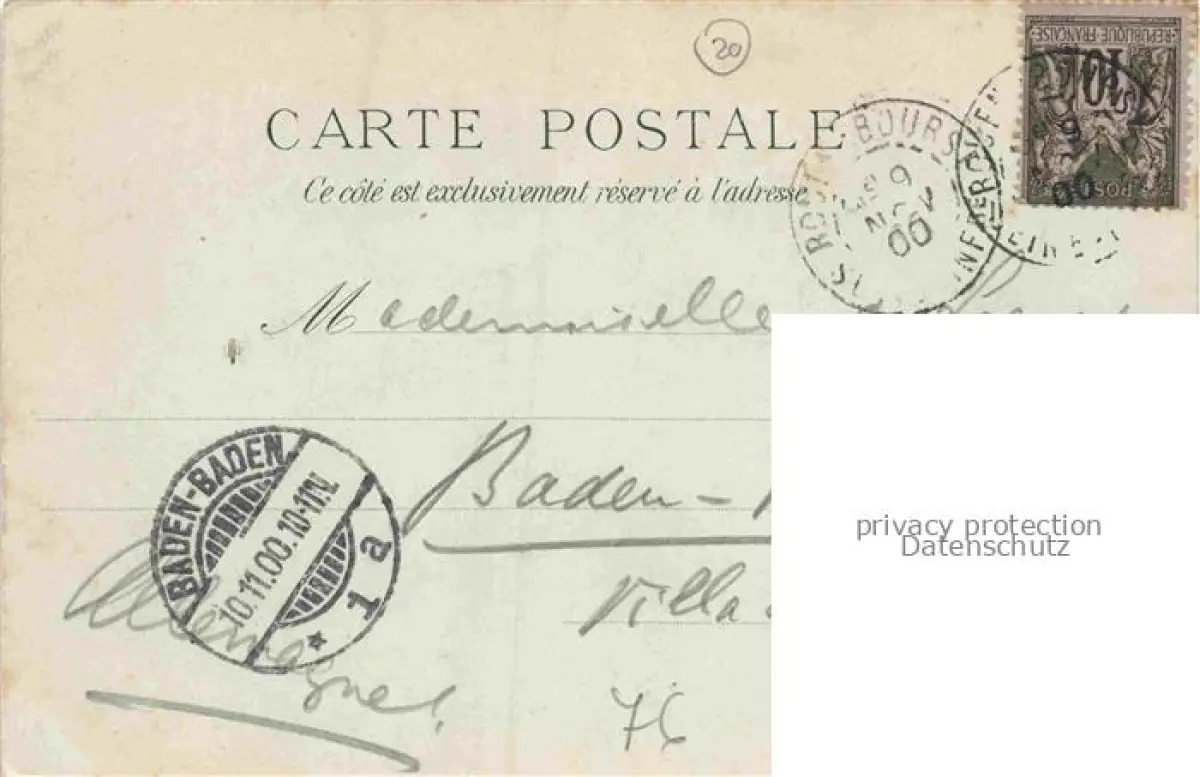 20
REPUBLIQUE FRANÇAISE
10
POSTES
CARTE POSTALE
BOURG
9
NOV
00
Ce côté est exclusivement réservé à l'adresse
Mademoiselle
BADEN-BADEN
10.11.00.10-11N.
* 1 a
Baden-
privacy protection
Datenschutz
Villa
Allemagne
76